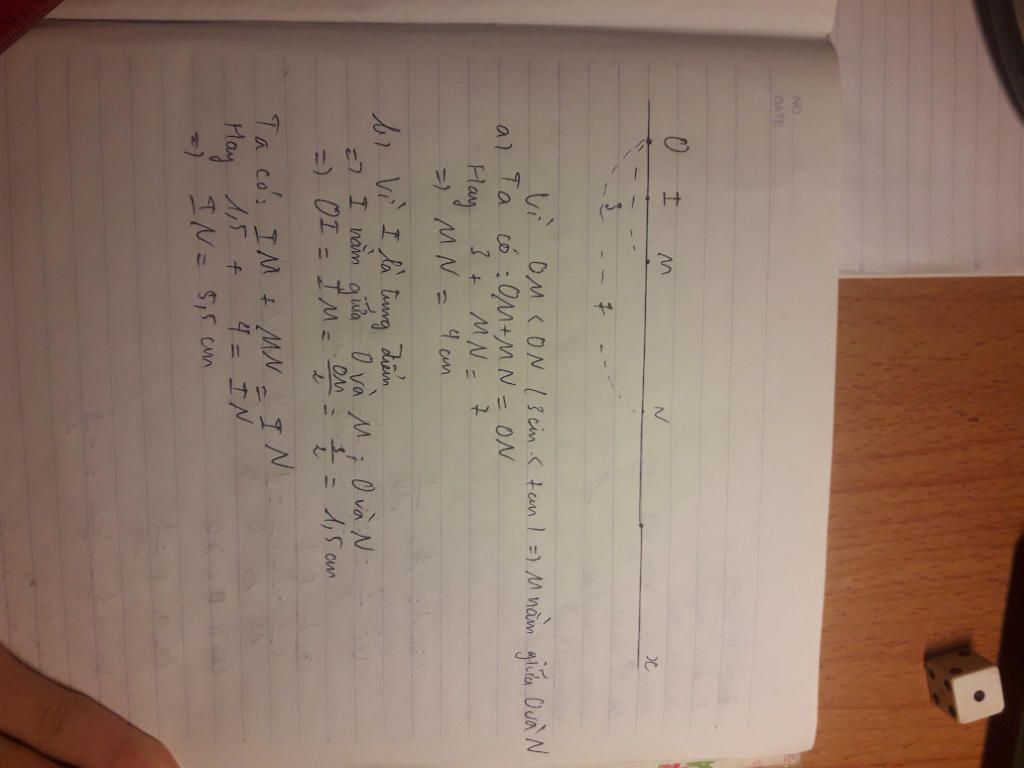 NO.
DATE
O I M N x
3
7
Vì OM < ON (3cm < 7cm) => M nằm giữa O và N
a) Ta có: OM + MN = ON
Hay 3 + MN = 7
=> MN = 4 cm
b) Vì I là trung điểm
=> I nằm giữa O và M; O và N.
=> OI = IM = OM/2 = 3/2 = 1,5 cm
Ta có: IM + MN = IN
Hay 1,5 + 4 = IN
=> IN = 5,5 cm